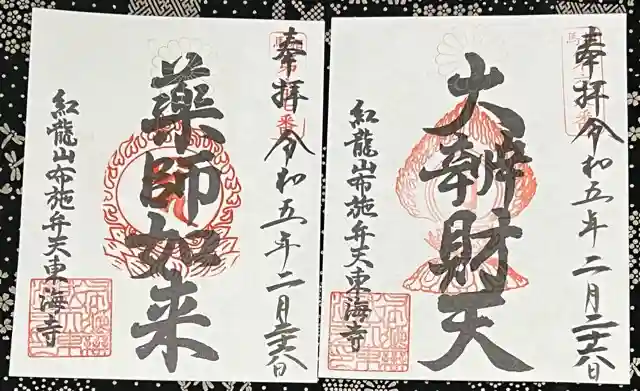 奉拝
令和五年二月二十六日
大辨財天
紅龍山布施弁天東海寺
奉拝
令和五年二月二十六日
薬師如来
紅龍山布施弁天東海寺